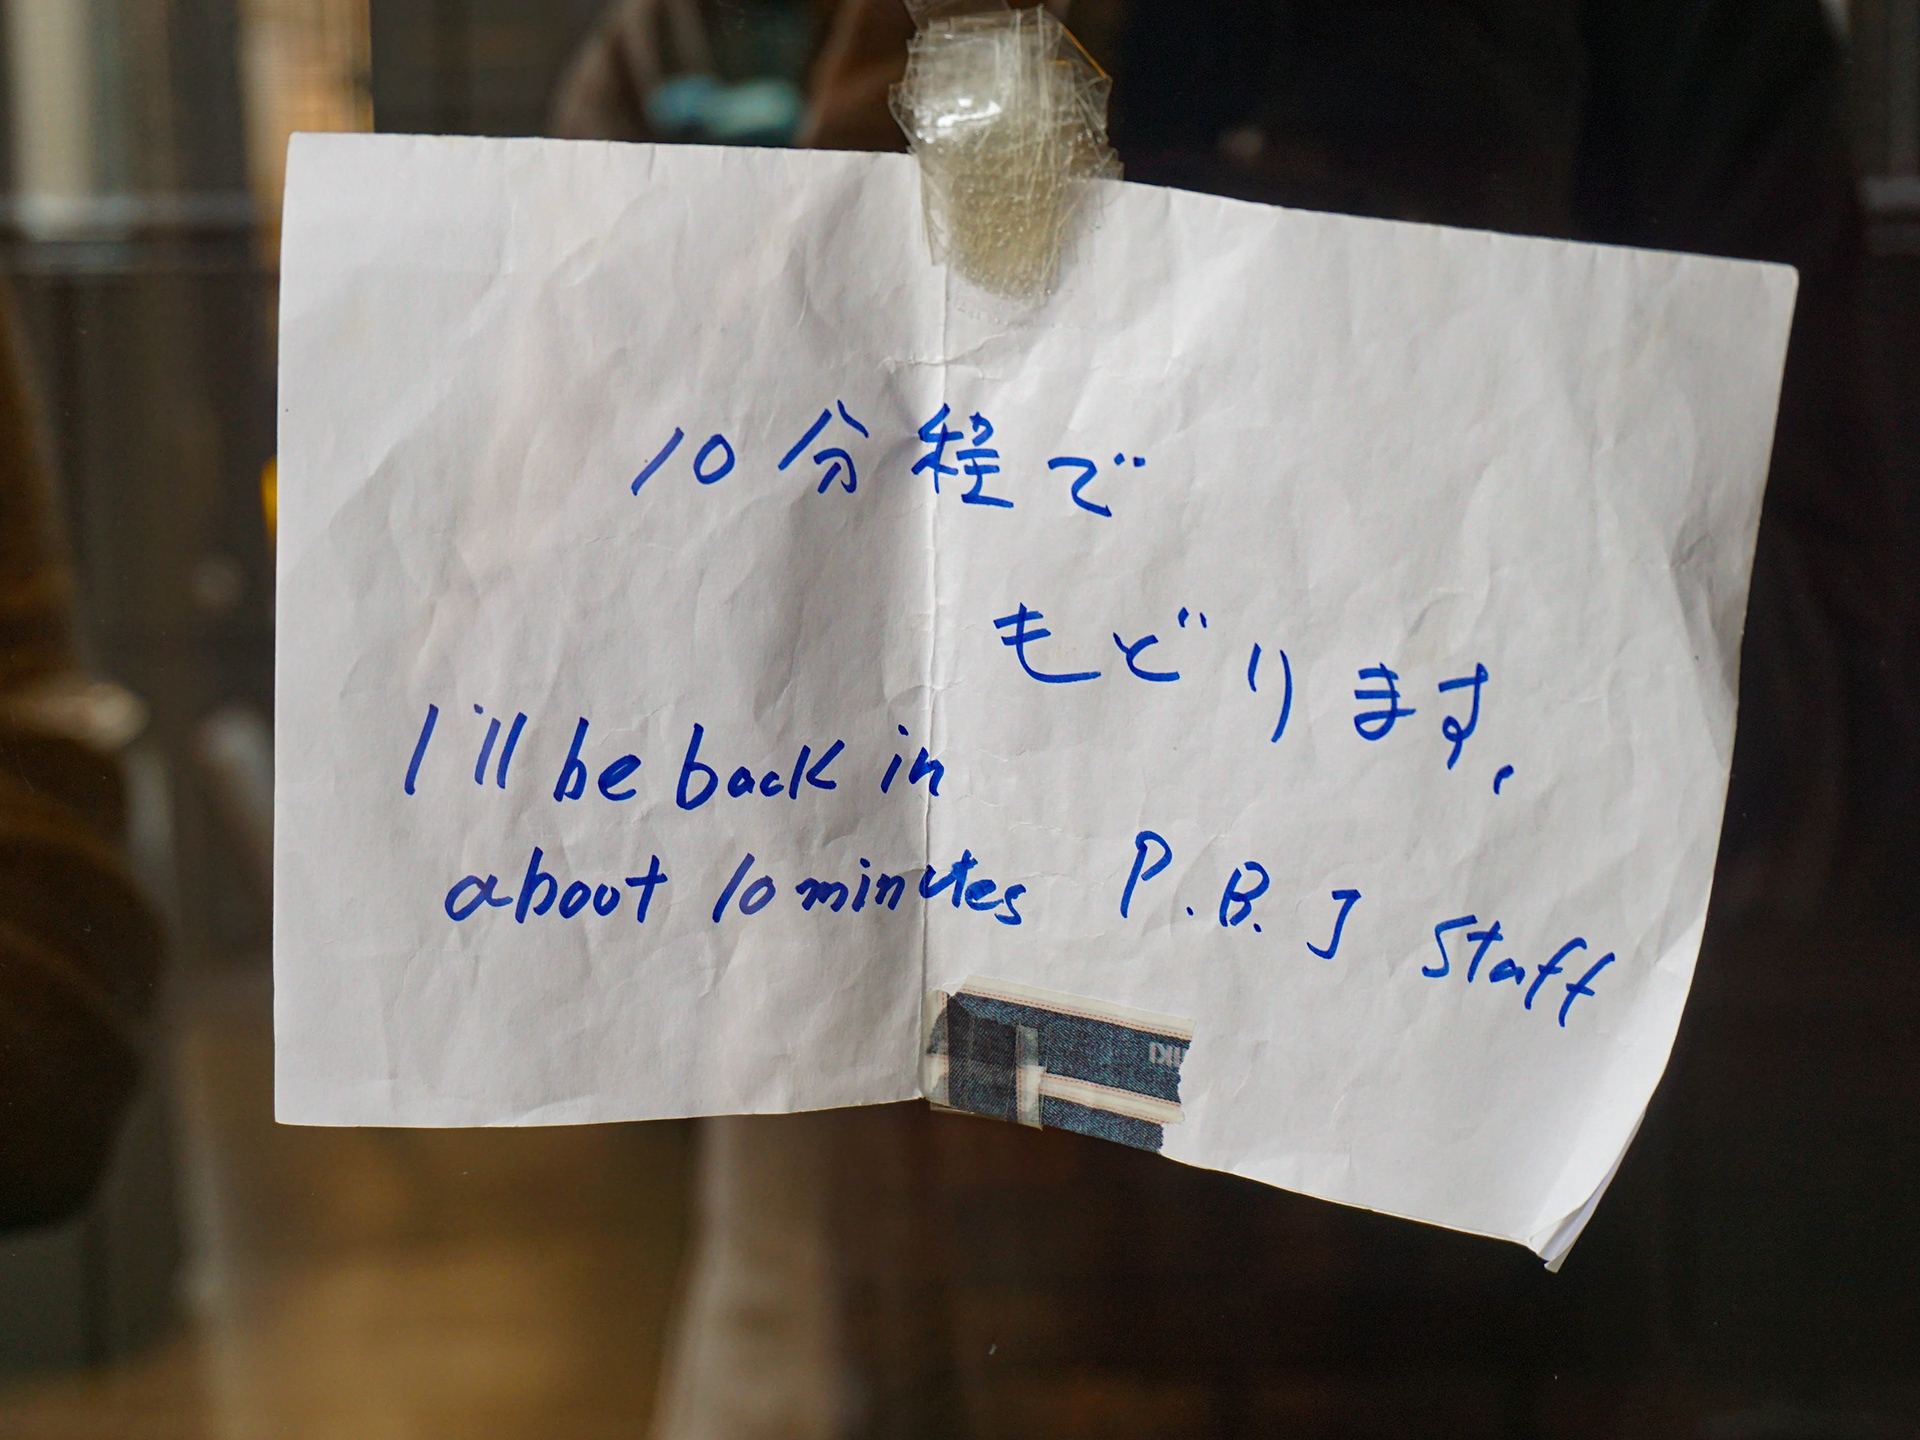 10分程で
もどります.
I'll be back in
about 10 minutes
P.B.J staff